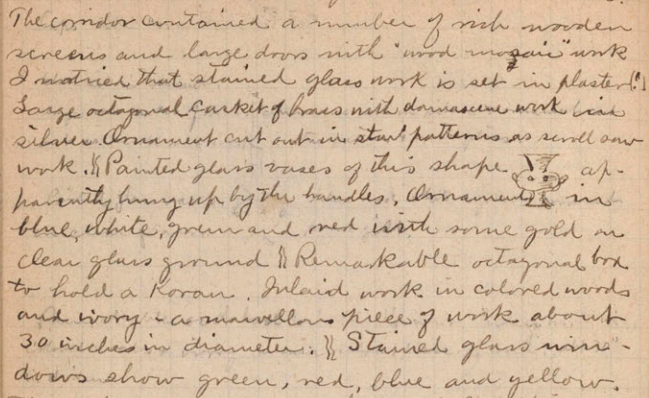 The corridor contained a number of rich wooden
screens and large doors with "wood mosaic" work
I noticed that stained glass work is set in plaster (!)
Large octagonal casket of brass with damascene work in
silver. Ornament cut out in star patterns as scroll saw
work. || Painted glass vases of this shape ap-
parently hung up by the handles. Ornamented in
blue, white, green and red with some gold on
clear glass ground || Remarkable octagonal box
to hold a Koran. Inlaid work in colored woods
and ivory - a marvellous piece of work about
30 inches in diameter. || Stained glass win-
dows show green, red, blue and yellow.